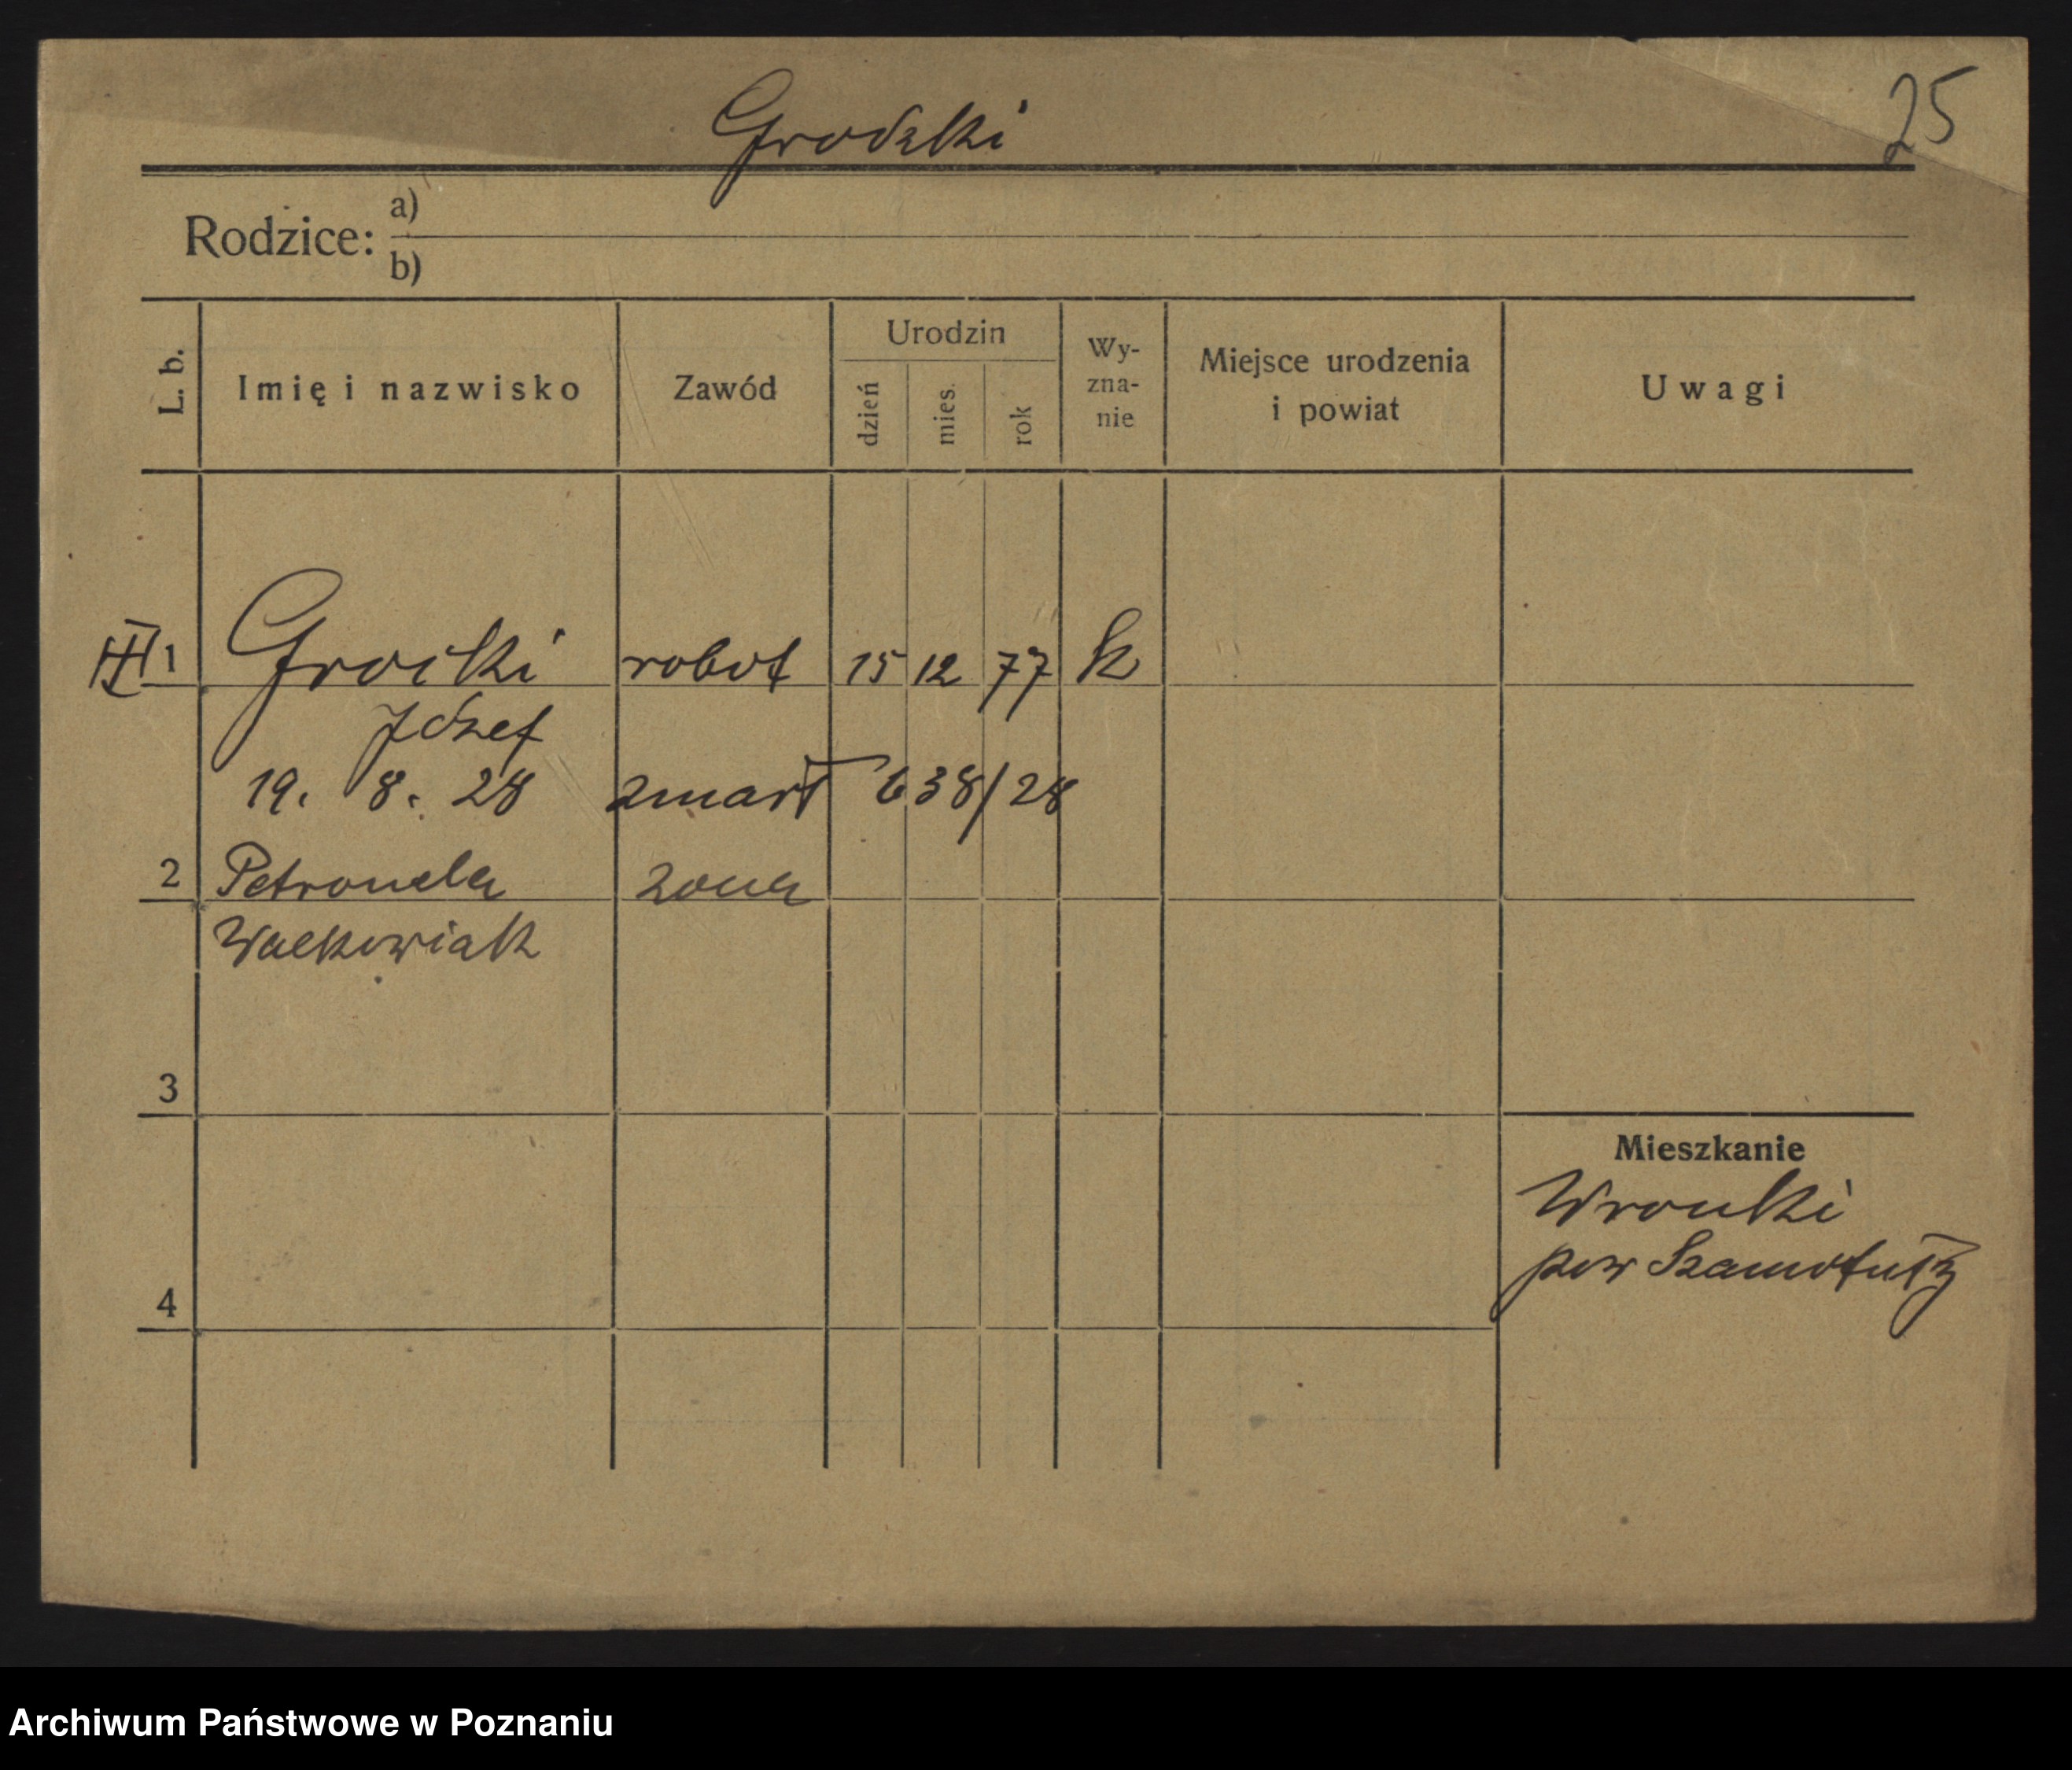 Grodzki
25
Rodzice: a)
b)
L. b.
Imię i nazwisko
Zawód
Urodzin
dzień
mies.
rok
Wy-
zna-
nie
Miejsce urodzenia
i powiat
Uwagi
1 Grocki robot 15 12 77 k
Józef
19. 8. 28 zmarł 638/28
2 Petronela żona
Walkowiak
3
Mieszkanie
Wronki
pow Szamotuły
4
Archiwum Państwowe w Poznaniu